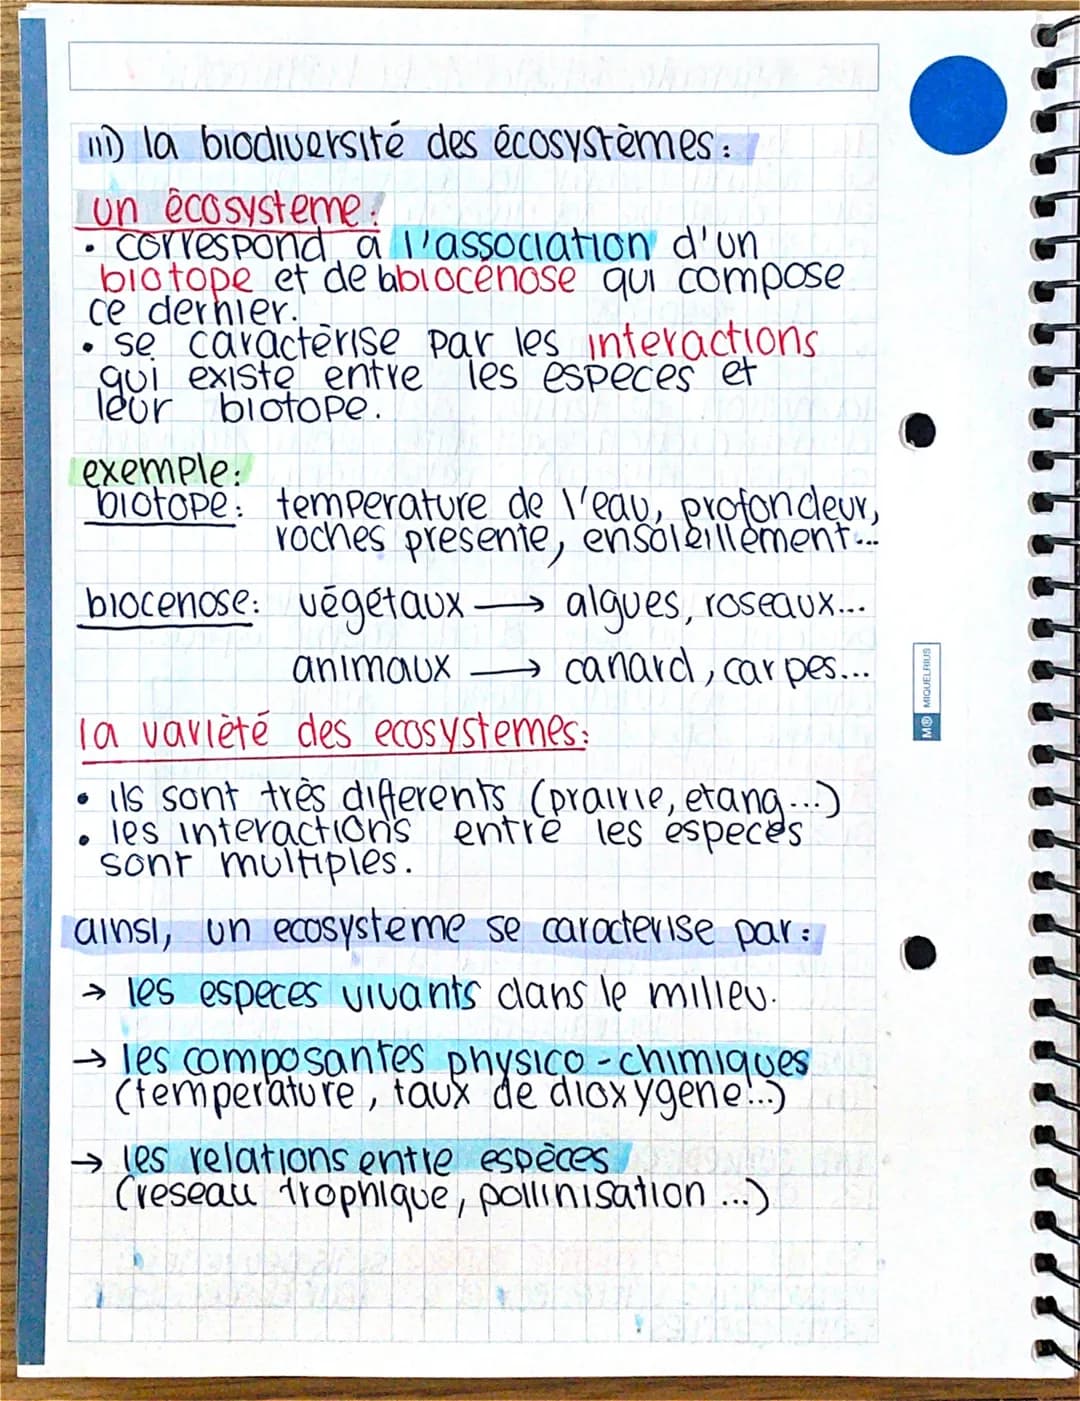 III) la biodiversité des écosystèmes :
un écosysteme :
• correspond à l'association d'un
biotope et de biocénose qui compose
ce dernier.
• se caractèrise par les interactions
qui existe entre les especes et
leur biotope.
exemple:
biotope: temperature de l'eau, profondeur,
roches presente, ensoleillement...
biocenose: végétaux → algues, roseaux...
animaux → canard, carpes...
la varièté des ecosystemes:
• ils sont très differents (prairie, etang...)
• les interactions entre les especes
sont multiples.
ainsi, un ecosysteme se caracterise par:
→ les especes vivants dans le milieu.
→ les composantes physico-chimiques
(temperature, taux de dioxygene...)
→ les relations entre espèces
(reseau trophique, pollinisation...)
MIQUELRIUS